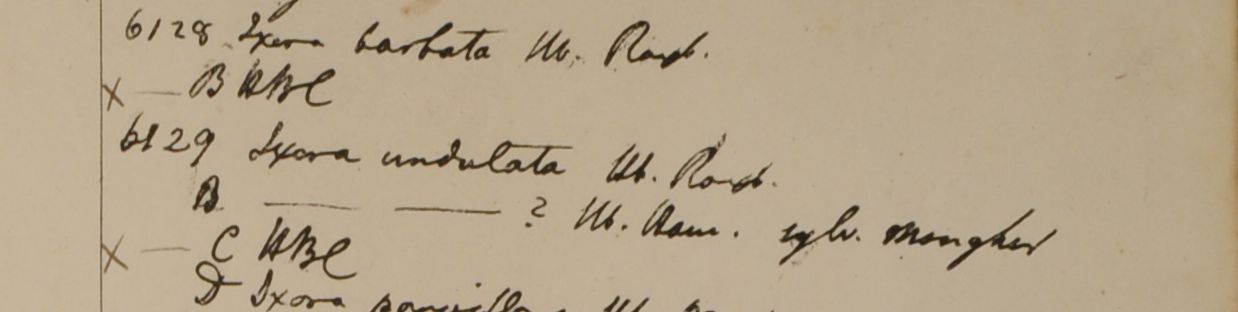 6128 Ixora barbata Hb. Roxb.
X — B HBC
6129 Ixora undulata Hb. Roxb.
B — — ? Hb. Ham. sylv. Mongher
X — C HBC
D Ixora Hb.